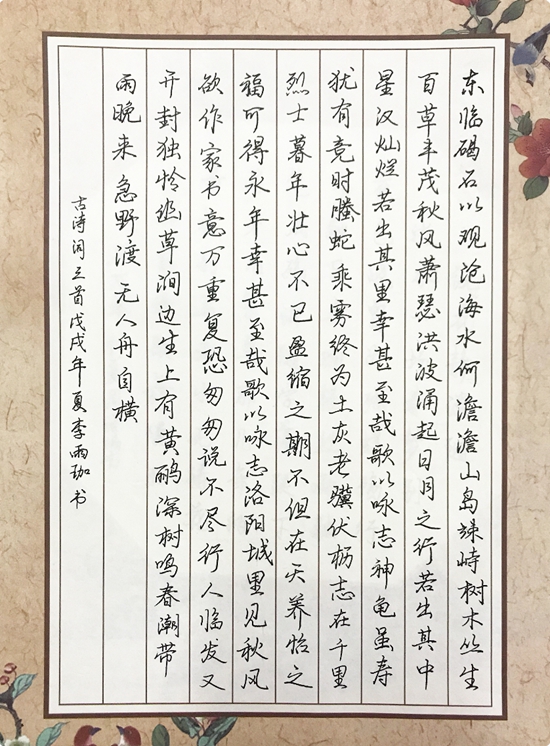 东临碣石以观沧海水何澹澹山岛竦峙树木丛生
百草丰茂秋风萧瑟洪波涌起日月之行若出其中
星汉灿烂若出其里幸甚至哉歌以咏志神龟虽寿
犹有竟时螣蛇乘雾终为土灰老骥伏枥志在千里
烈士暮年壮心不已盈缩之期不但在天养怡之
福可得永年幸甚至哉歌以咏志洛阳城里见秋风
欲作家书意万重复恐匆匆说不尽行人临发又
开封独怜幽草涧边生上有黄鹂深树鸣春潮带
雨晚来急野渡无人舟自横
古诗词三首戊戌年夏李雨珈书